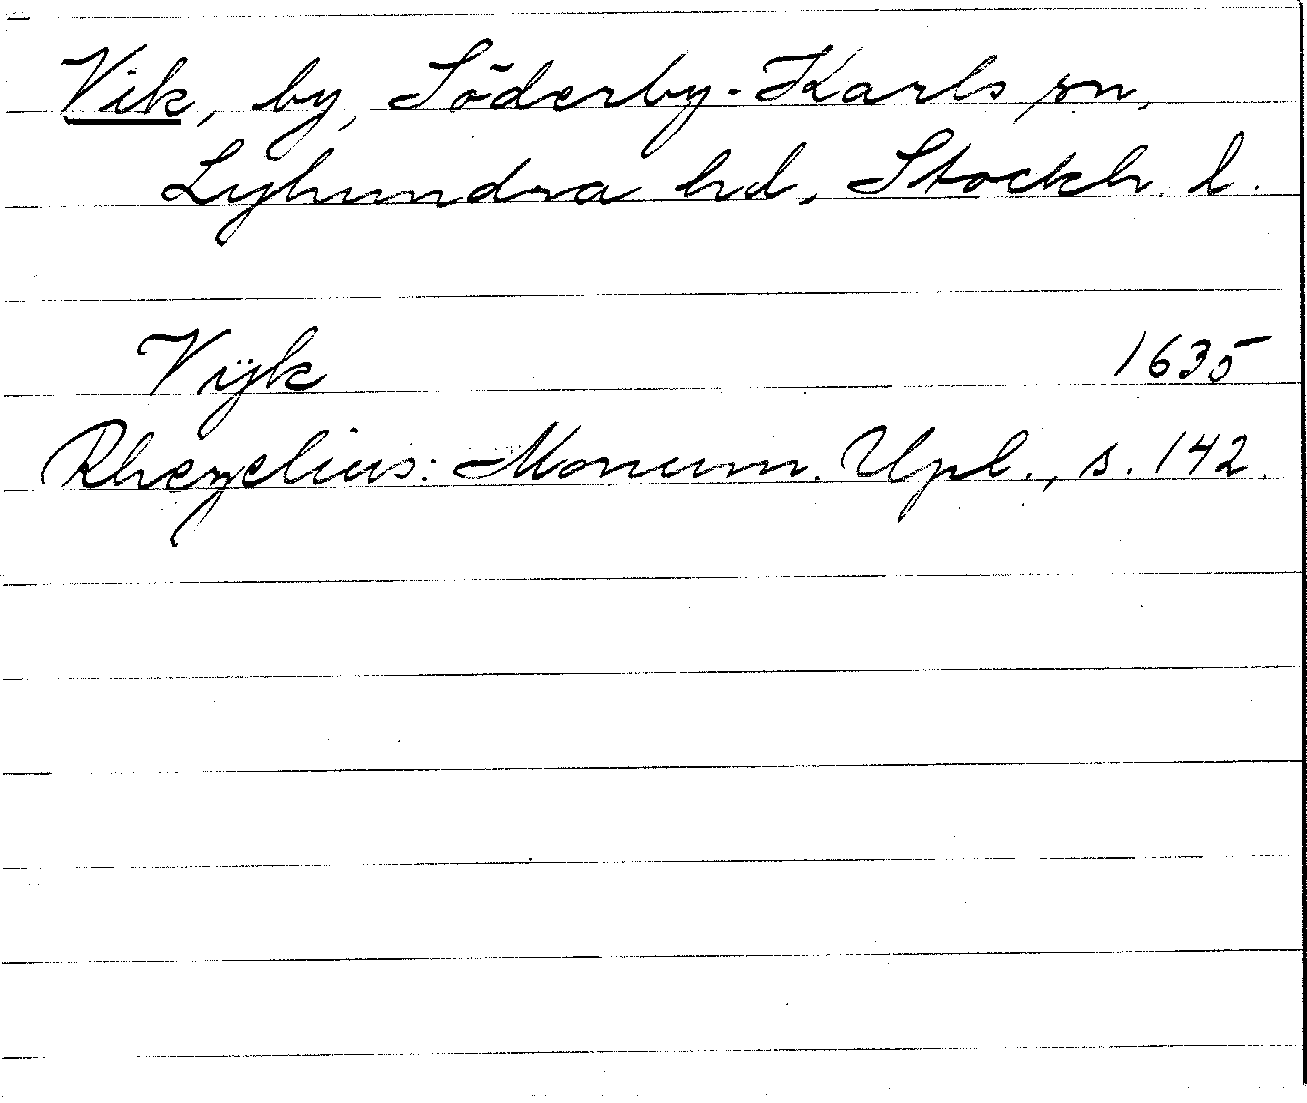 Vik, by, Söderby-Karls sn,
Lyhundra hd, Stockh. l.
Vijk 1635
Rhezelius: Monum. Upl., s. 142.